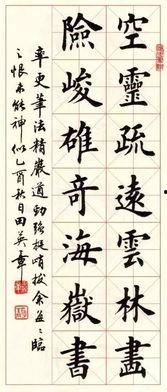 空靈疏遠雲林畫
險峻雄奇海嶽書
率更筆法精嚴遒勁險挺峭拔余臨
之恨未能神似乙酉秋日田英章